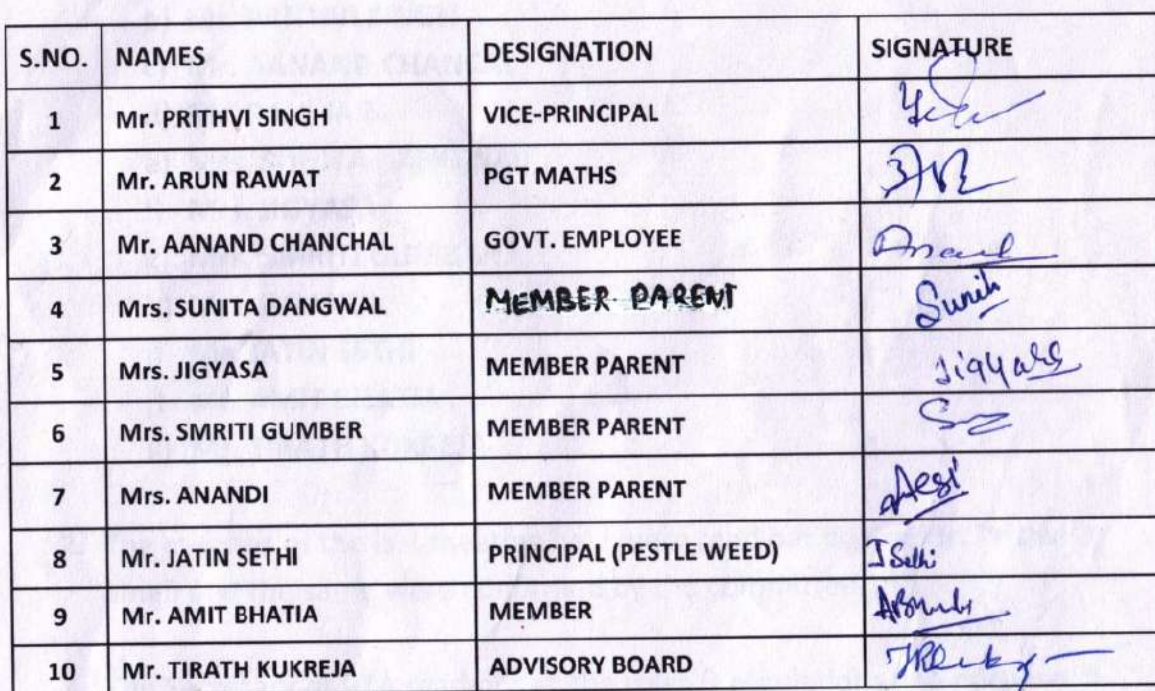 S.NO. NAMES DESIGNATION SIGNATURE
1 Mr. PRITHVI SINGH VICE-PRINCIPAL
2 Mr. ARUN RAWAT PGT MATHS
3 Mr. AANAND CHANCHAL GOVT. EMPLOYEE
4 Mrs. SUNITA DANGWAL MEMBER PARENT Sunit
5 Mrs. JIGYASA MEMBER PARENT
6 Mrs. SMRITI GUMBER MEMBER PARENT
7 Mrs. ANANDI MEMBER PARENT
8 Mr. JATIN SETHI PRINCIPAL (PESTLE WEED) J Sethi
9 Mr. AMIT BHATIA MEMBER
10 Mr. TIRATH KUKREJA ADVISORY BOARD